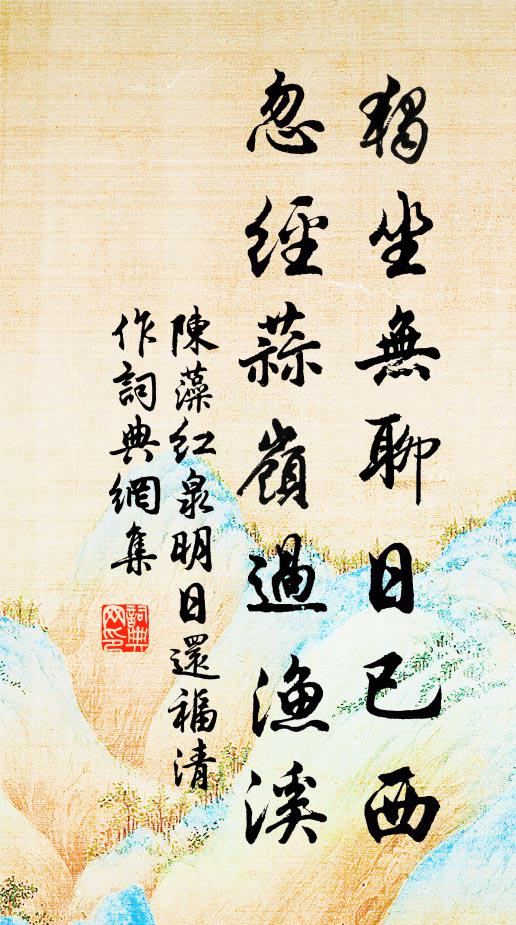 獨坐無聊日已西
忽經蒜嶺過漁溪
陳藻紅泉明日還福清
作詞典網集
詞典網印